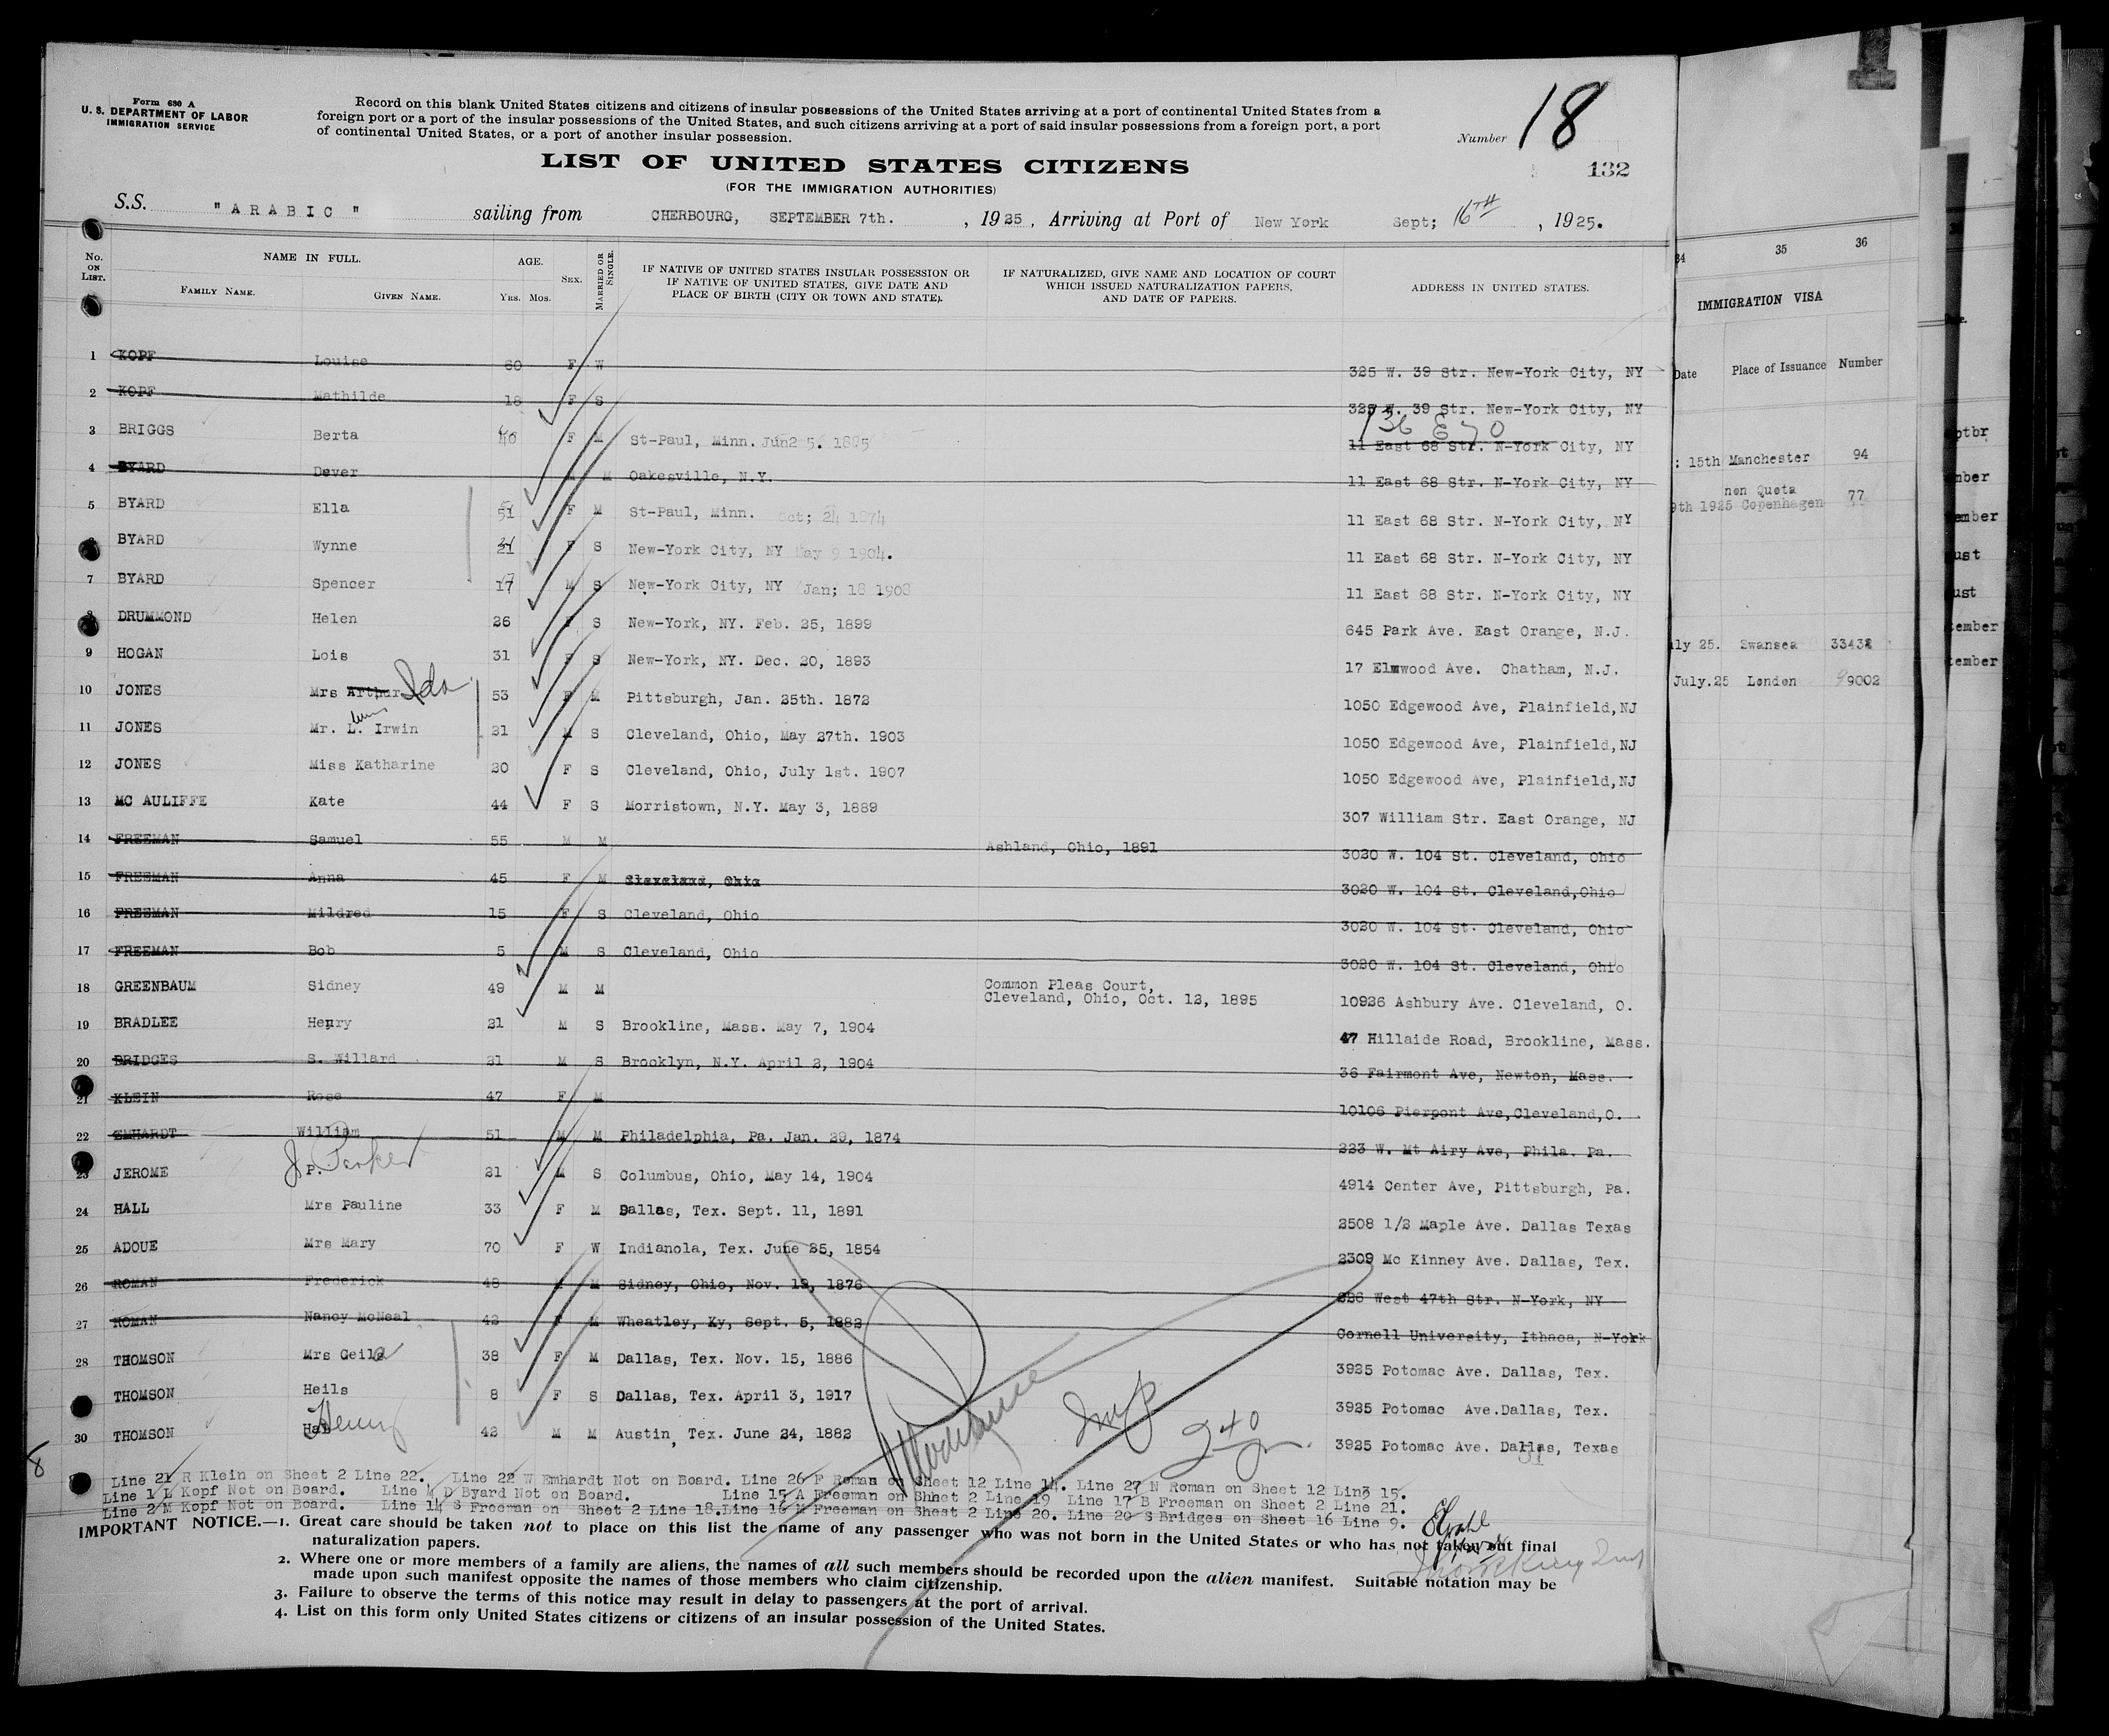 Form 630 A
U. S. DEPARTMENT OF LABOR
IMMIGRATION SERVICE
Record on this blank United States citizens and citizens of insular possessions of the United States arriving at a port of continental United States from a
foreign port or a port of the insular possessions of the United States, and such citizens arriving at a port of said insular possessions from a foreign port, a port
of continental United States, or a port of another insular possession.
Number 18
132
LIST OF UNITED STATES CITIZENS
(FOR THE IMMIGRATION AUTHORITIES)
S.S. "ARABIC" sailing from CHERBOURG, SEPTEMBER 7th. , 1925 , Arriving at Port of New York Sept; 16TH , 1925.
No. ON LIST. NAME IN FULL. FAMILY NAME. GIVEN NAME. AGE. YRS. MOS. SEX. MARRIED OR SINGLE. IF NATIVE OF UNITED STATES INSULAR POSSESSION OR IF NATIVE OF UNITED STATES, GIVE DATE AND PLACE OF BIRTH (CITY OR TOWN AND STATE). IF NATURALIZED, GIVE NAME AND LOCATION OF COURT WHICH ISSUED NATURALIZATION PAPERS, AND DATE OF PAPERS. ADDRESS IN UNITED STATES.
1 KOPF Louise 60 F W 325 W. 39 Str. New-York City, NY
2 KOPF Mathilde 18 F S 325 W. 39 Str. New-York City, NY
136 E 70
3 BRIGGS Berta 40 F M St-Paul, Minn. June 5. 1885 11 East 68 Str. N-York City, NY
4 BYARD Dever M Oakesville, N.Y. 11 East 68 Str. N-York City, NY
5 BYARD Ella 51 F M St-Paul, Minn. Oct; 24 1874 11 East 68 Str. N-York City, NY
6 BYARD Wynne 21 F S New-York City, NY May 9 1904. 11 East 68 Str. N-York City, NY
7 BYARD Spencer 17 M S New-York City, NY Jan; 18 1908 11 East 68 Str. N-York City, NY
8 DRUMMOND Helen 26 F S New-York, NY. Feb. 25, 1899 645 Park Ave. East Orange, N.J.
9 HOGAN Lois 31 F S New-York, NY. Dec. 20, 1893 17 Elmwood Ave. Chatham, N.J.
10 JONES Mrs Arthur Ida 53 F M Pittsburgh, Jan. 25th. 1872 1050 Edgewood Ave, Plainfield,NJ
11 JONES Mr. L. Irwin 21 M S Cleveland, Ohio, May 27th. 1903 1050 Edgewood Ave, Plainfield,NJ
12 JONES Miss Katharine 20 F S Cleveland, Ohio, July 1st. 1907 1050 Edgewood Ave, Plainfield,NJ
13 MC AULIFFE Kate 44 F S Morristown, N.Y. May 3, 1889 307 William Str. East Orange, NJ
14 FREEMAN Samuel 55 M M Ashland, Ohio, 1891 3020 W. 104 St. Cleveland, Ohio
15 FREEMAN Anna 45 F M Cleveland, Ohio 3020 W. 104 St. Cleveland,Ohio
16 FREEMAN Mildred 15 F S Cleveland, Ohio 3020 W. 104 St. Cleveland, Ohio
17 FREEMAN Bob 5 M S Cleveland, Ohio 3020 W. 104 St. Cleveland, Ohio
18 GREENBAUM Sidney 49 M M Common Pleas Court, Cleveland, Ohio, Oct. 12, 1895 10926 Ashbury Ave. Cleveland, O.
19 BRADLEE Henry 21 M S Brookline, Mass. May 7, 1904 47 Hillaide Road, Brookline, Mass.
20 BRIDGES S. Willard 21 M S Brooklyn, N.Y. April 2, 1904 36 Fairmont Ave, Newton, Mass.
21 KLEIN Rose 47 F M 10106 Pierpont Ave,Cleveland,O.
22 EMHARDT William 51 M M Philadelphia, Pa. Jan. 29, 1874 223 W. Mt Airy Ave, Phila. Pa.
23 JEROME J P. Parker 21 M S Columbus, Ohio, May 14, 1904 4914 Center Ave, Pittsburgh, Pa.
24 HALL Mrs Pauline 33 F M Dallas, Tex. Sept. 11, 1891 2508 1/2 Maple Ave. Dallas Texas
25 ADOUE Mrs Mary 70 F W Indianola, Tex. June 25, 1854 2309 Mc Kinney Ave. Dallas, Tex.
26 ROMAN Frederick 48 M M Sidney, Ohio, Nov. 12, 1876 226 West 47th Str. N-York, NY
27 ROMAN Nancy McNeal 42 F M Wheatley, Ky, Sept. 5, 1882 Cornell University, Ithaca, N-York
28 THOMSON Mrs Ceila 38 F M Dallas, Tex. Nov. 15, 1886 3925 Potomac Ave. Dallas, Tex.
29 THOMSON Heils 8 F S Dallas, Tex. April 3, 1917 3925 Potomac Ave.Dallas, Tex.
30 THOMSON Henry 42 M M Austin, Tex. June 24, 1882 3925 Potomac Ave. Dallas, Texas
Imp
240
8
Line 21 R Klein on Sheet 2 Line 22. Line 22 W Emhardt Not on Board. Line 26 F Roman on Sheet 12 Line 14. Line 27 N Roman on Sheet 12 Line 15.
Line 1 L Kopf Not on Board. Line 4 D Byard Not on Board. Line 15 A Freeman on Sheet 2 Line 19 Line 17 B Freeman on Sheet 2 Line 21.
Line 2 M Kopf Not on Board. Line 14 S Freeman on Sheet 2 Line 18. Line 16 M Freeman on Sheet 2 Line 20. Line 20 S Bridges on Sheet 16 Line 9.
IMPORTANT NOTICE.—1. Great care should be taken not to place on this list the name of any passenger who was not born in the United States or who has not taken out final
naturalization papers.
2. Where one or more members of a family are aliens, the names of all such members should be recorded upon the alien manifest. Suitable notation may be
made upon such manifest opposite the names of those members who claim citizenship.
3. Failure to observe the terms of this notice may result in delay to passengers at the port of arrival.
4. List on this form only United States citizens or citizens of an insular possession of the United States.
34 35 36
IMMIGRATION VISA
Date Place of Issuance Number
15th Manchester 94
non Quota
9th 1925 Copenhagen 77
25. Swansea 33438
July.25 London 99002